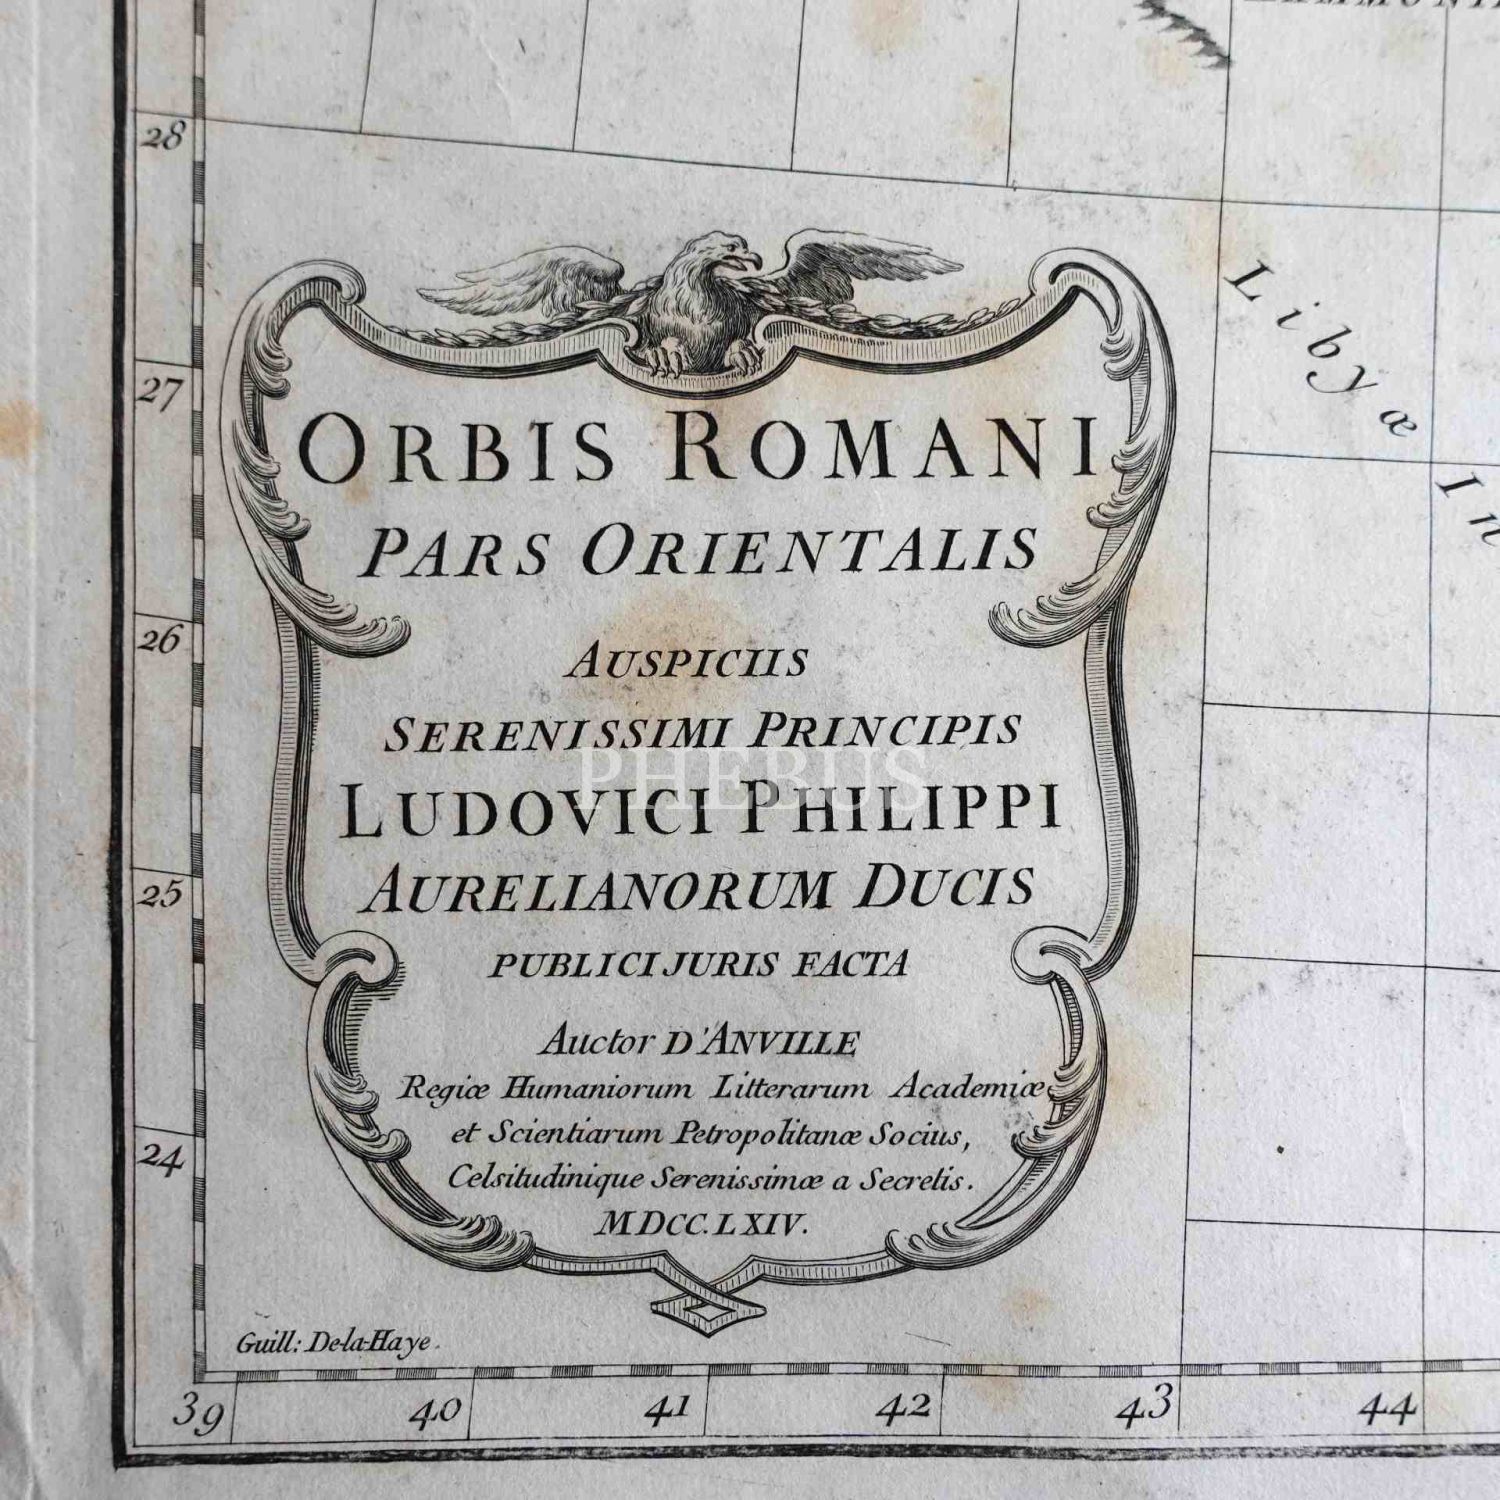 28
27
26
25
24
Libyæ
In
ORBIS ROMANI
PARS ORIENTALIS
AUSPICIIS
SERENISSIMI PRINCIPIS
PHEBUS
LUDOVICI PHILIPPI
AURELIANORUM DUCIS
PUBLICI JURIS FACTA
Auctor D'ANVILLE
Regiæ Humaniorum Litterarum Academiæ
et Scientiarum Petropolitanæ Socius,
Celsitudinique Serenissimæ a Secretis.
MDCC.LXIV.
Guill: De-la-Haye.
39 40 41 42 43 44